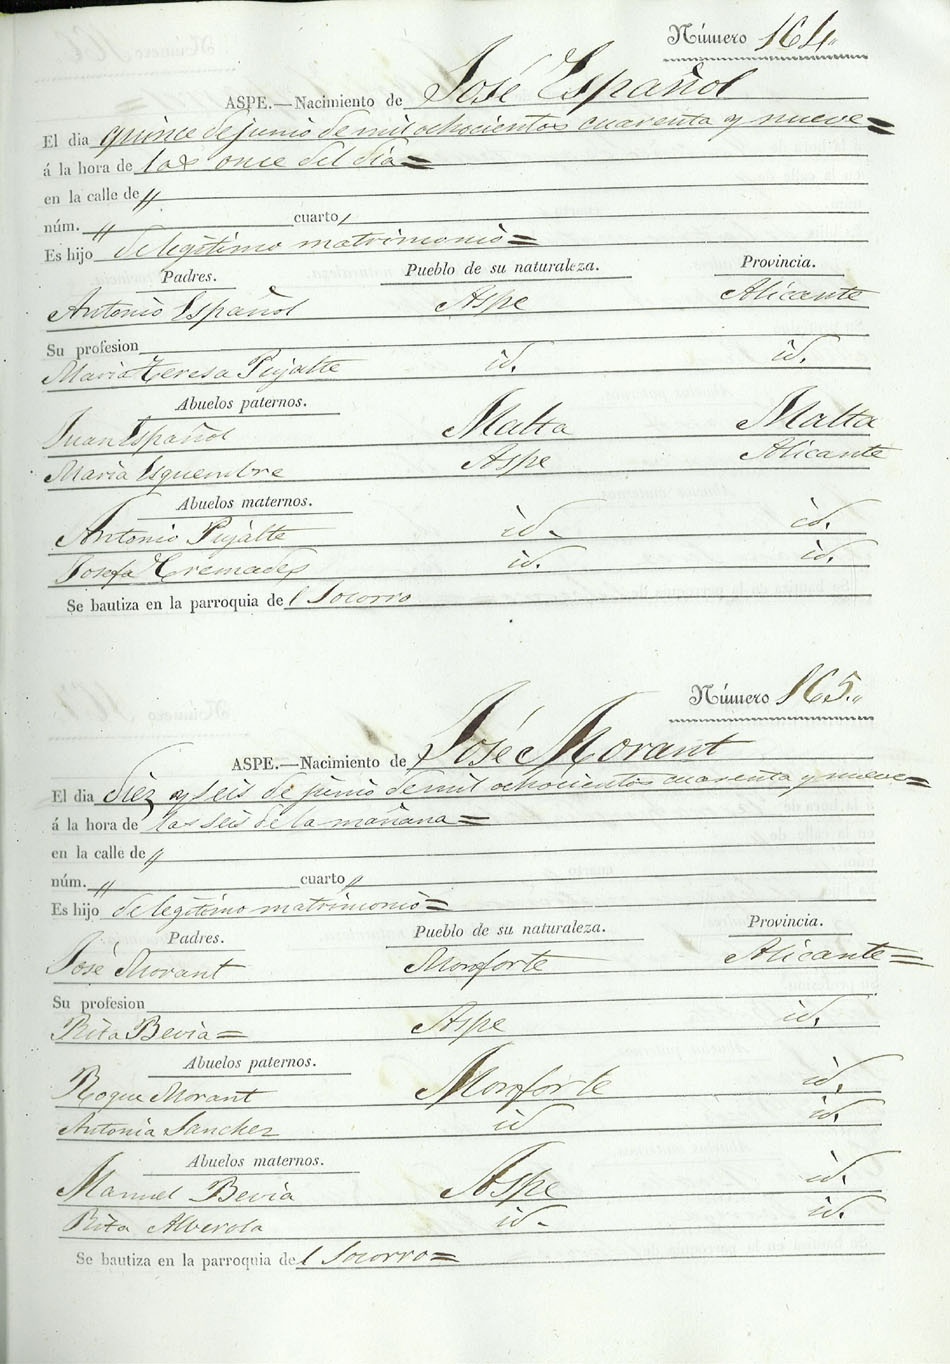 Número 164.
ASPE.—Nacimiento de José Español
El dia quince de junio de mil ochocientos cuarenta y nueve=
á la hora de las once del dia=
en la calle de "
núm. " cuarto "
Es hijo de legítimo matrimonio=
Padres. Pueblo de su naturaleza. Provincia.
Antonio Español Aspe Alicante
Su profesion
Maria Teresa Pujalte id. id.
Abuelos paternos.
Juan Español Malta Malta
Maria Esquembre Aspe Alicante
Abuelos maternos.
Antonio Pujalte id. id.
Josefa Cremades id. id.
Se bautiza en la parroquia de l Socorro
Número 165.
ASPE.—Nacimiento de José Morant
El dia diez y seis de junio de mil ochocientos cuarenta y nueve=
á la hora de las seis de la mañana=
en la calle de "
núm. " cuarto "
Es hijo de legítimo matrimonio=
Padres. Pueblo de su naturaleza. Provincia.
José Morant Monforte Alicante=
Su profesion
Rita Bevia= Aspe id.
Abuelos paternos.
Roque Morant Monforte id.
Antonia Sanchez id id.
Abuelos maternos.
Manuel Bevia Aspe id.
Rita Alverola id. id.
Se bautiza en la parroquia de l Socorro=